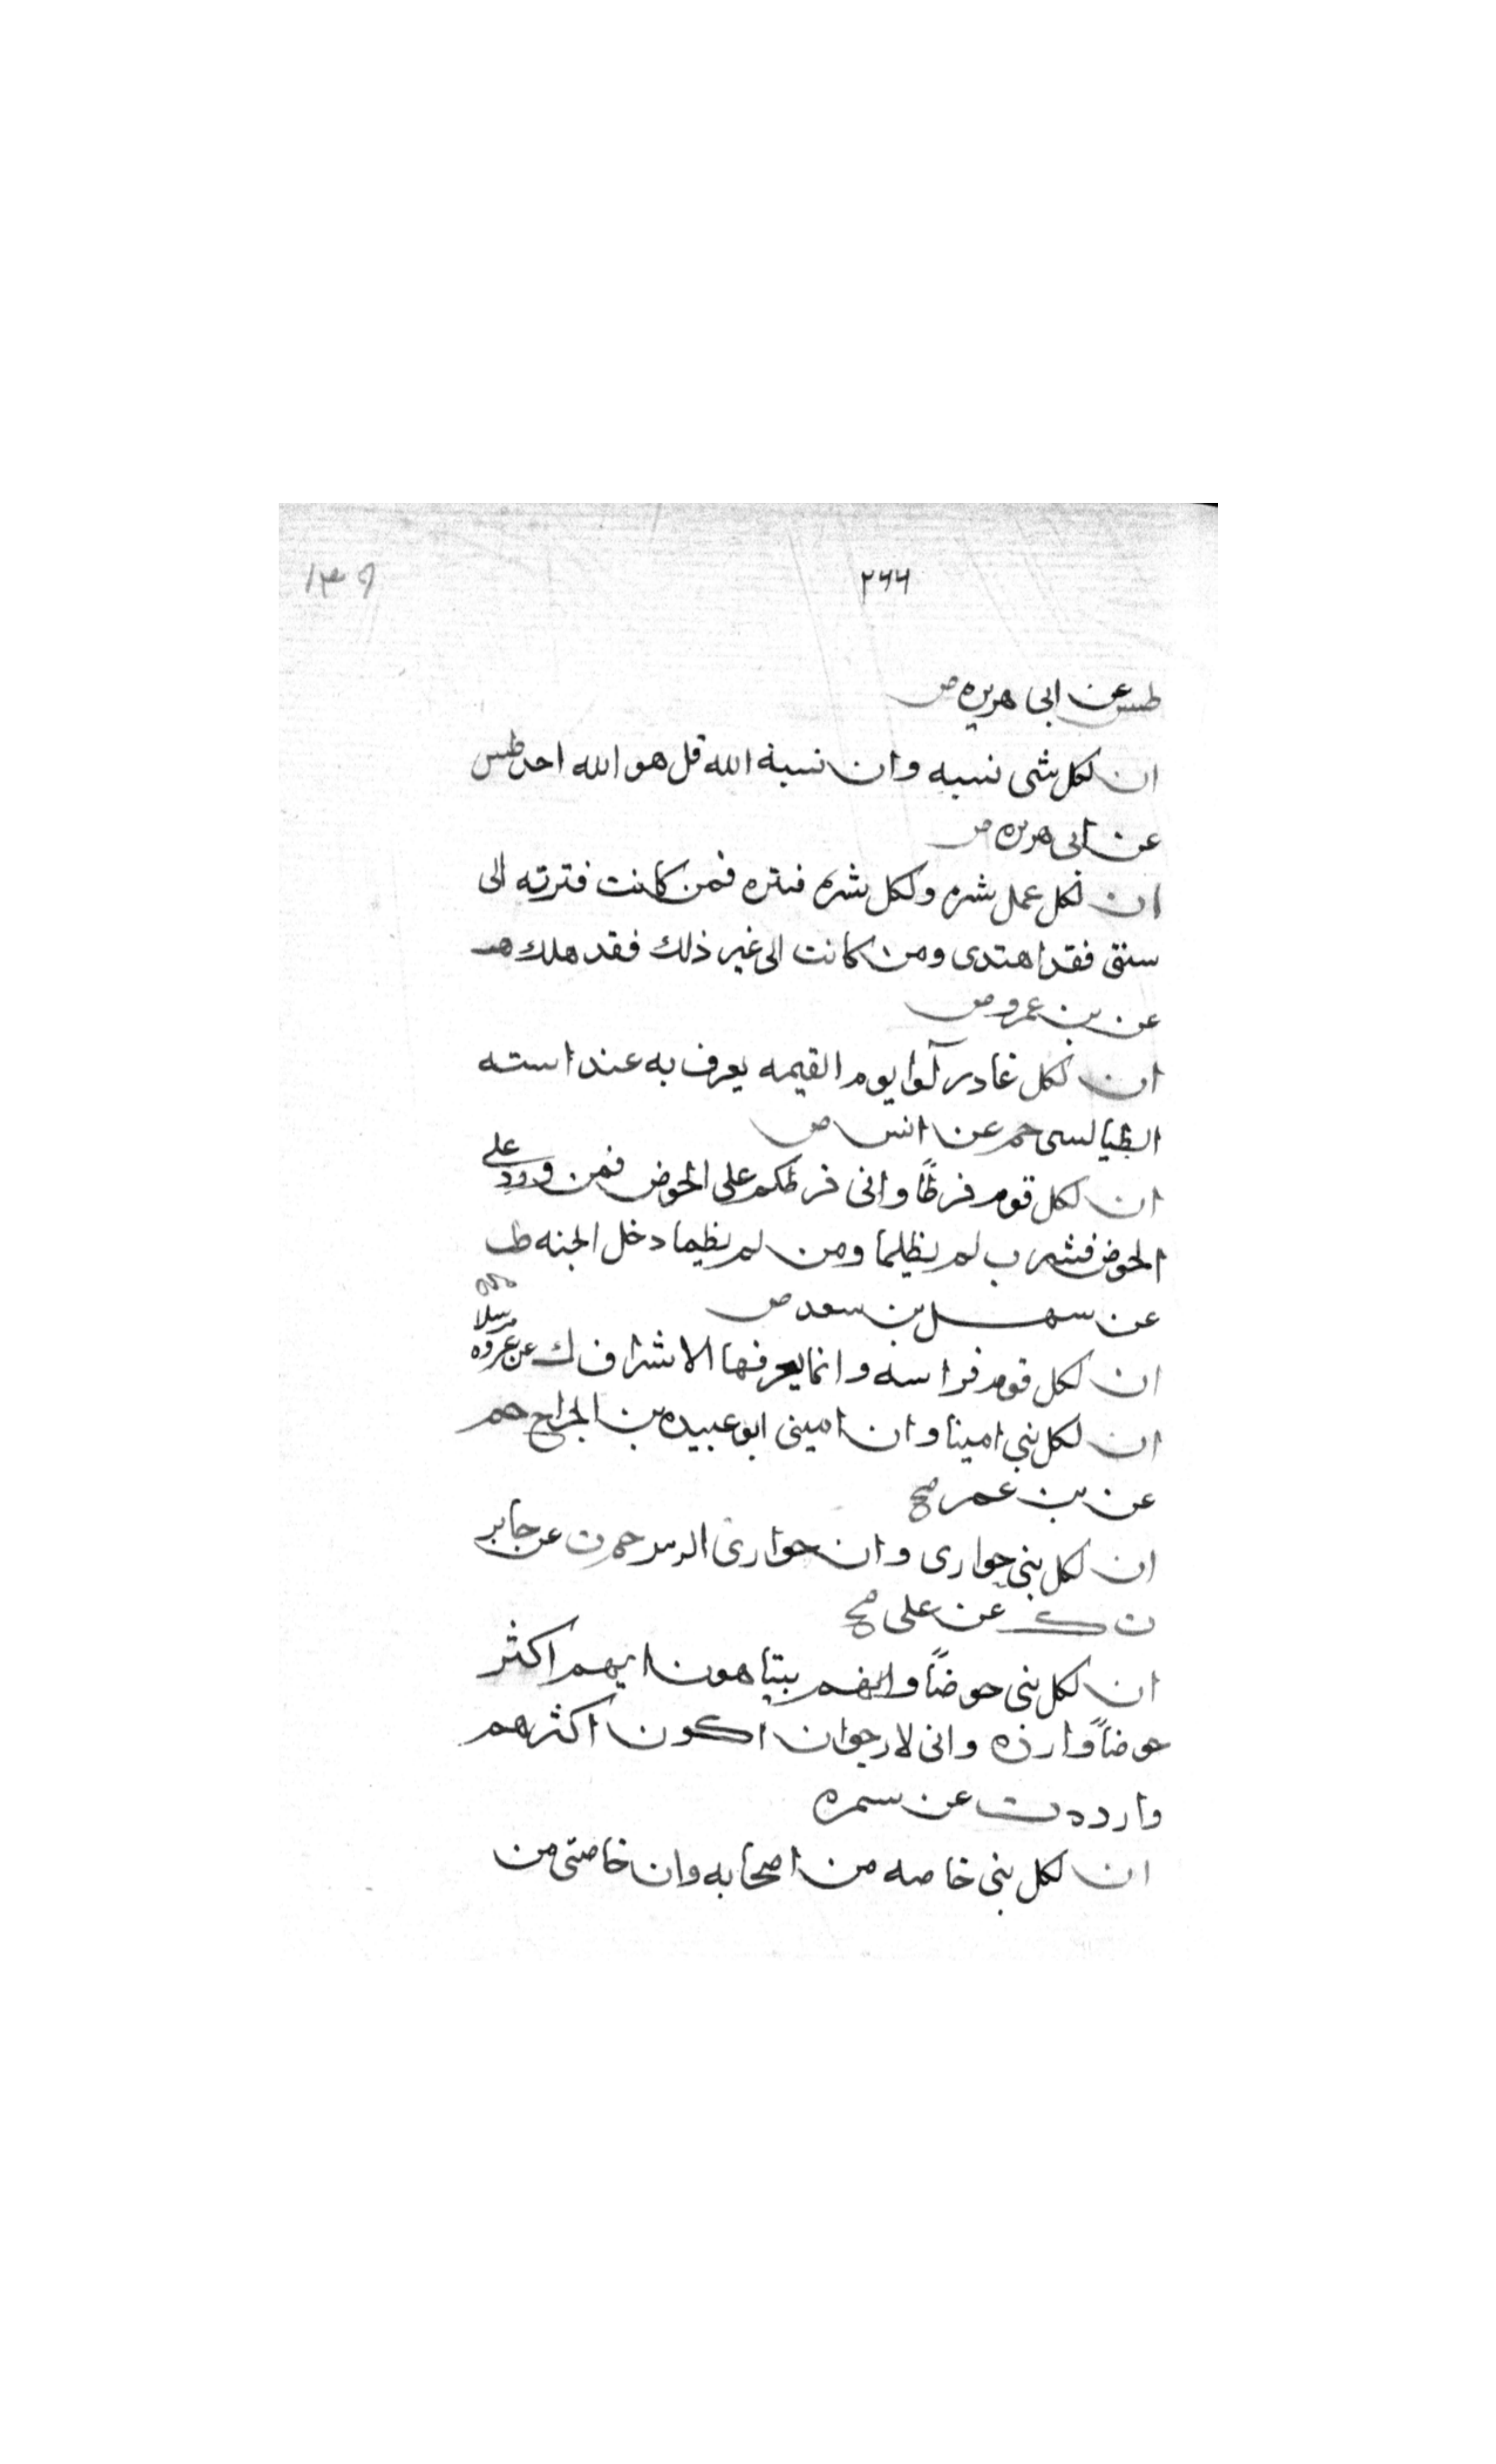 ٢٦٦
١٣٩
طس عن ابى هريره ض
ان لكل شى نسبه وان نسبة الله قل هو الله احد طس
عن ابى هريره ض
ان لكل عمل شره ولكل شره فتره فمن كانت فترته الى
سنتى فقد اهتدى ومن كانت الى غير ذلك فقد هلك هب
عن بن عمرو ض
ان لكل غادر لوا يوم القيمه يعرف به عند استه
الطيالسى حم عن انس ض
ان لكل قوم فرطًا وانى فرطكم على الحوض فمن ورد على
الحوض فشرب لم يظما ومن لم يظما دخل الجنه طب
عن سهل بن سعد ض
ان لكل قوم فراسه وانما يعرفها الاشراف ك عن عروه مرسلا
ان لكل نبى امينا وان امينى ابو عبيده بن الجراح حم
عن بن عمر صح
ان لكل نبى حوارى وان حوارى الزبير خ ت عن جابر
ت ك عن على صح
ان لكل نبى حوضًا وانهم يتباهون ايهم اكثر
حوضًا وارده وانى لارجوان اكون اكثرهم
وارده ت عن سمره
ان لكل نبى خاصه من اصحابه وان خاصتى من